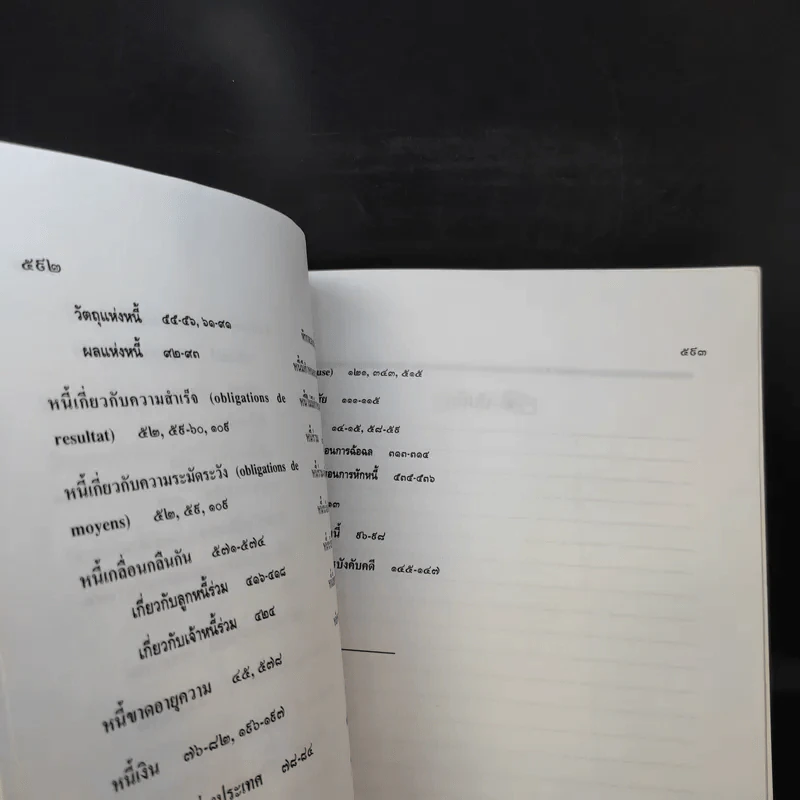 ๕๙๒
วัตถุแห่งหนี้ ๕๕-๕๖, ๖๑-๙๑
ผลแห่งหนี้ ๙๒-๙๓
หนี้เกี่ยวกับความสำเร็จ (obligations de
resultat) ๕๒, ๕๙-๖๐, ๑๐๙
หนี้เกี่ยวกับความระมัดระวัง (obligations de
moyens) ๕๒, ๕๙, ๑๐๙
หนี้เกลื่อนกลืนกัน ๕๗๑-๕๗๔
เกี่ยวกับลูกหนี้ร่วม ๔๑๖-๔๑๘
เกี่ยวกับเจ้าหนี้ร่วม ๔๒๔
หนี้ขาดอายุความ ๔๕, ๕๗๘
หนี้เงิน ๗๖-๘๒, ๑๙๖-๑๙๗
ประเทศ ๗๘-๘๔
๕๙๓
use) ๑๒๑, ๓๔๓, ๕๑๕
ภัย ๑๑๑-๑๑๕
๑๔-๑๕, ๕๘-๕๙
อนการฉ้อฉล ๓๑๓-๓๑๔
อนการหักหนี้ ๕๓๔-๕๓๖
๑๓
นี้ ๙๖-๙๘
รบังคับคดี ๑๔๕-๑๔๗